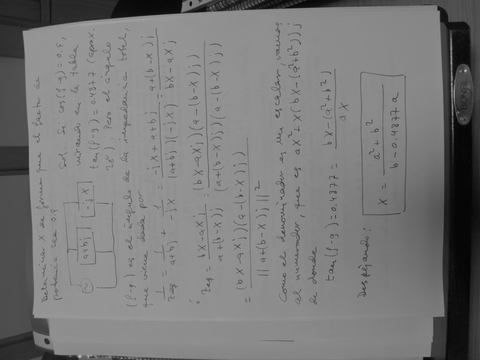 Determina X de forma que el factor de
potencia sea 0.9.
a+bj
-jX
Sol. Si cos(φ-φ)=0.9,
mirando en la tabla
tan(φ-φ)=0.4877 (aprox.
26°). Pero el ángulo
(φ-φ) es el ángulo de la impedancia total,
que viene dada por
1/Zeq = 1/(a+bj) + 1/(-jX) = (-jX+a+bj)/((a+bj)(-jX)) = (a+(b-X)j)/(bX-aXj)
Zeq = (bX-aXj)/(a+(b-X)j) = ((bX-aXj)(a-(b-X)j))/((a+(b-X)j)(a-(b-X)j))
= ((bX-aXj)(a-(b-X)j))/||a+(b-X)j||²
Como el denominador es un escalar, vamos
al numerador, que es aX²+X(bX-(a²+b²))j
de donde
tan(φ-φ)=0.4877= (bX-(a²+b²))/(aX)
Despejando:
X = (a²+b²)/(b-0.4877a)